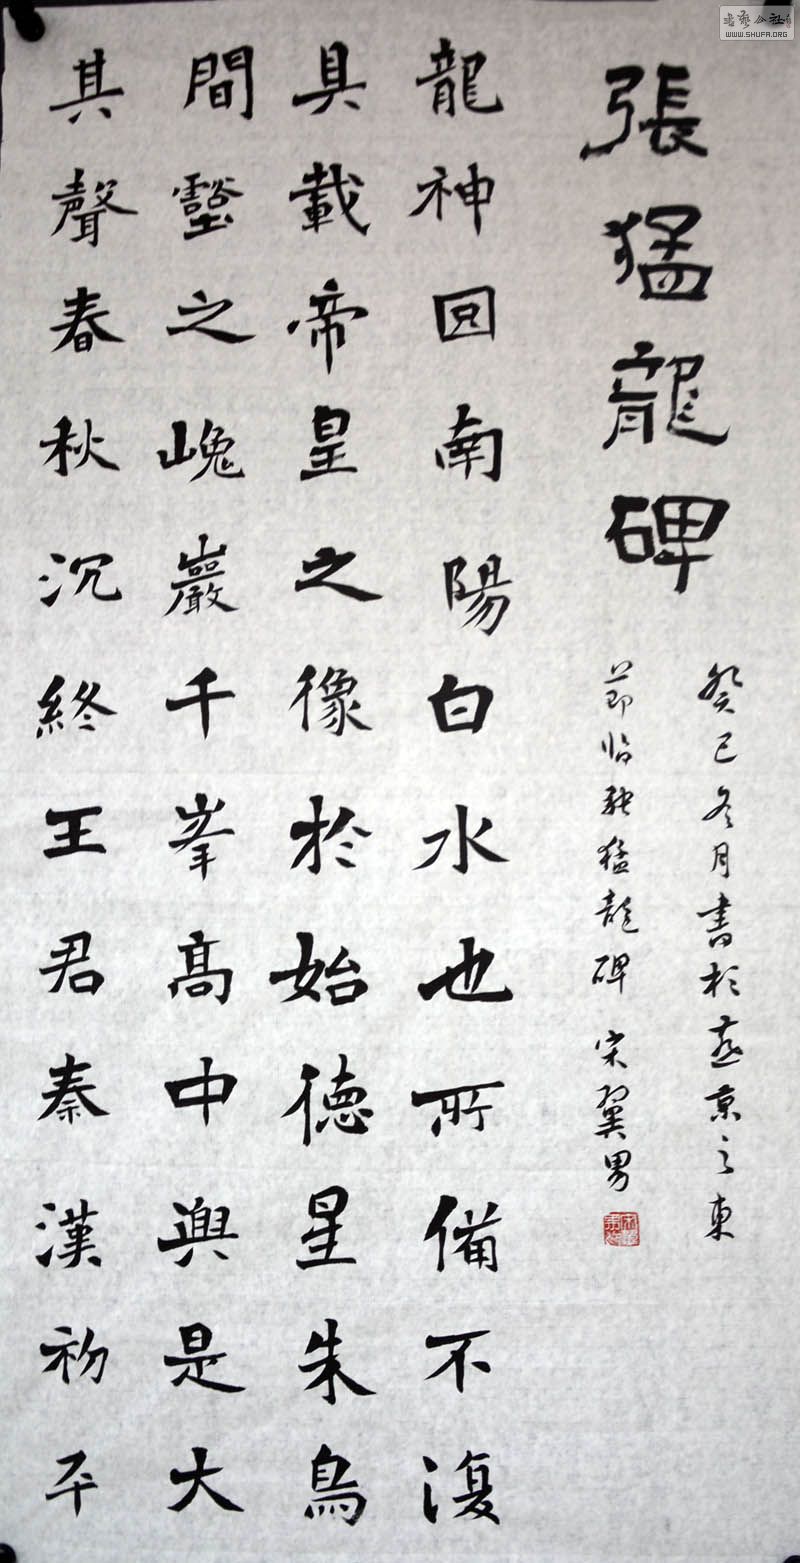 張猛龍碑
癸巳冬月書於燕京之東
節临张猛龍碑 宋翼男
龍神冏南陽白水也所備不復
具載帝皇之像於始德星朱鳥
間壑之巉巖千峯高中興是大
其聲春秋沉終王君秦漢初平
書藝公社
WWW.SHUFA.ORG